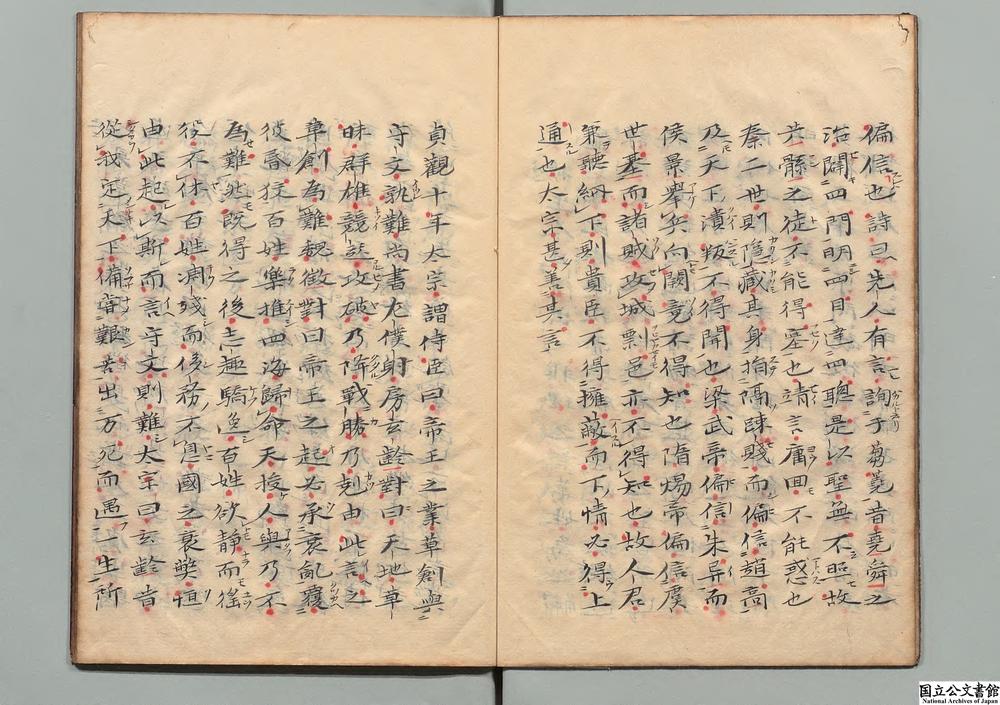 偏信也詩曰先人有言詢于芻蕘昔堯舜之
治闢四門明四目達四聰是以聖無不照故
共鯀之徒不能得塞也靖言庸回不能惑也
秦二世則隱藏其身捐隔疎賤而偏信趙高
及天下潰叛不得聞也梁武帝偏信朱异而
侯景舉兵向闕竟不得知也隋煬帝偏信虞
世基而諸賊攻城剽邑亦不得知也故人君
兼聽納下則貴臣不得擁蔽而下情必得上
通也太宗甚善其言
貞觀十年太宗謂侍臣曰帝王之業草創與
守文孰難尚書左僕射房玄齡對曰天地草
昧群雄競起攻破乃降戰勝乃剋由此言之
草創為難魏徵對曰帝王之起必承衰亂覆
彼昏狡百姓樂推四海歸命天授人與乃不
為難然既得之後志趣驕逸百姓欲静而徭
役不休百姓凋残而侈務不息國之衰弊恒
由此起以斯而言守文則難太宗曰玄齡昔
從我定天下備嘗艱苦出万死而遇一生所
国立公文書館
National Archives of Japan